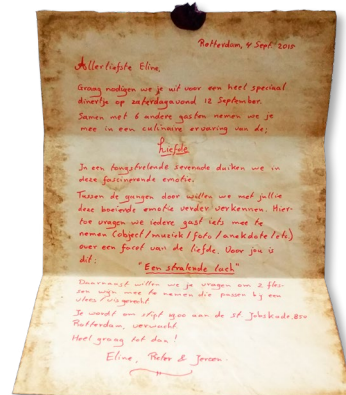 Rotterdam, 4 Sept. 2015
Allerliefste Eline,
Graag nodigen we je uit voor een heel speciaal
dinertje op zaterdagavond 12 September.
Samen met 6 andere gasten nemen we je
mee in een culinaire ervaring van de;
Liefde
In een tongstrelende serenade duiken we in
deze fascinerende emotie.
Tussen de gangen door willen we met jullie
deze boeiende emotie verder verkennen. Hier-
toe vragen we iedere gast iets mee te
nemen (object/muziek/foto/anekdote/etc)
over een facet van de liefde. Voor jou is
dit:
"Een stralende lach"
Daarnaast willen we je vragen om 2 fles-
sen wijn mee te nemen die passen bij een
vlees/visgerecht.
Je wordt om stipt 1900 aan de St Jobskade
Rotterdam, verwacht.
Heel graag tot dan!
Eline, Pieter & Jeroen.